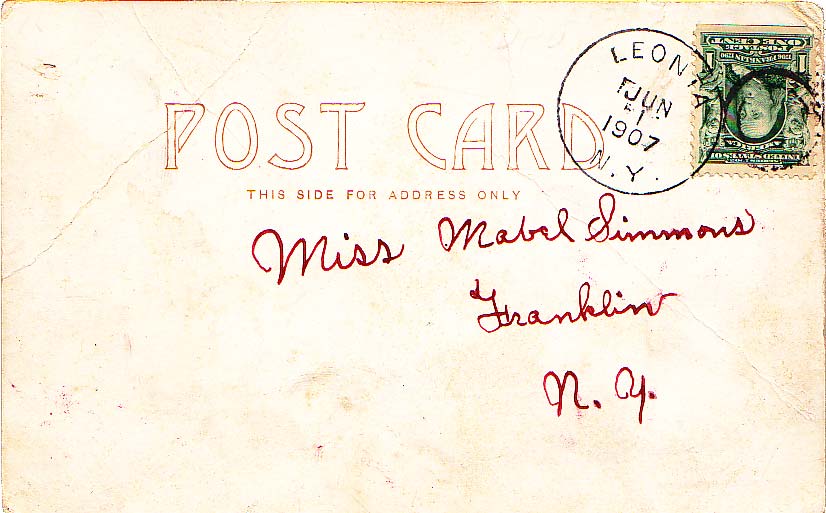 POST CARD
THIS SIDE FOR ADDRESS ONLY
LEONTA
JUN
1907
N.Y.
ONE CENT
POSTAGE
1 1
Miss Mabel Simmons
Franklin
N. Y.